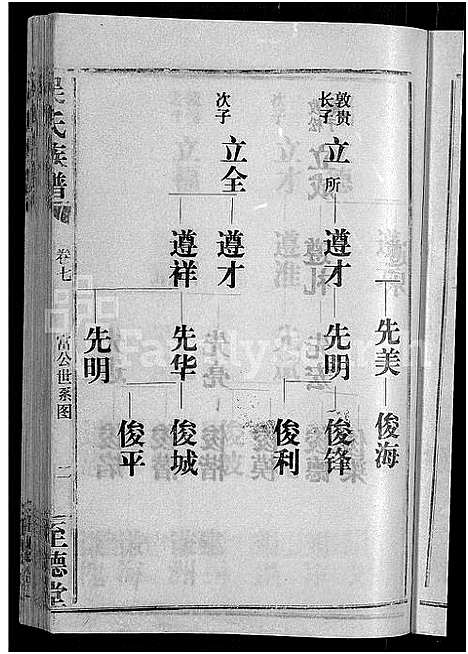 先美 俊海
敦贵长子 立所 遵才 先明 俊锋
俊利
次子 立全 遵才
遵祥 先华 俊城
俊平
先明
氏族谱
卷七
富公世系图
二
至德堂